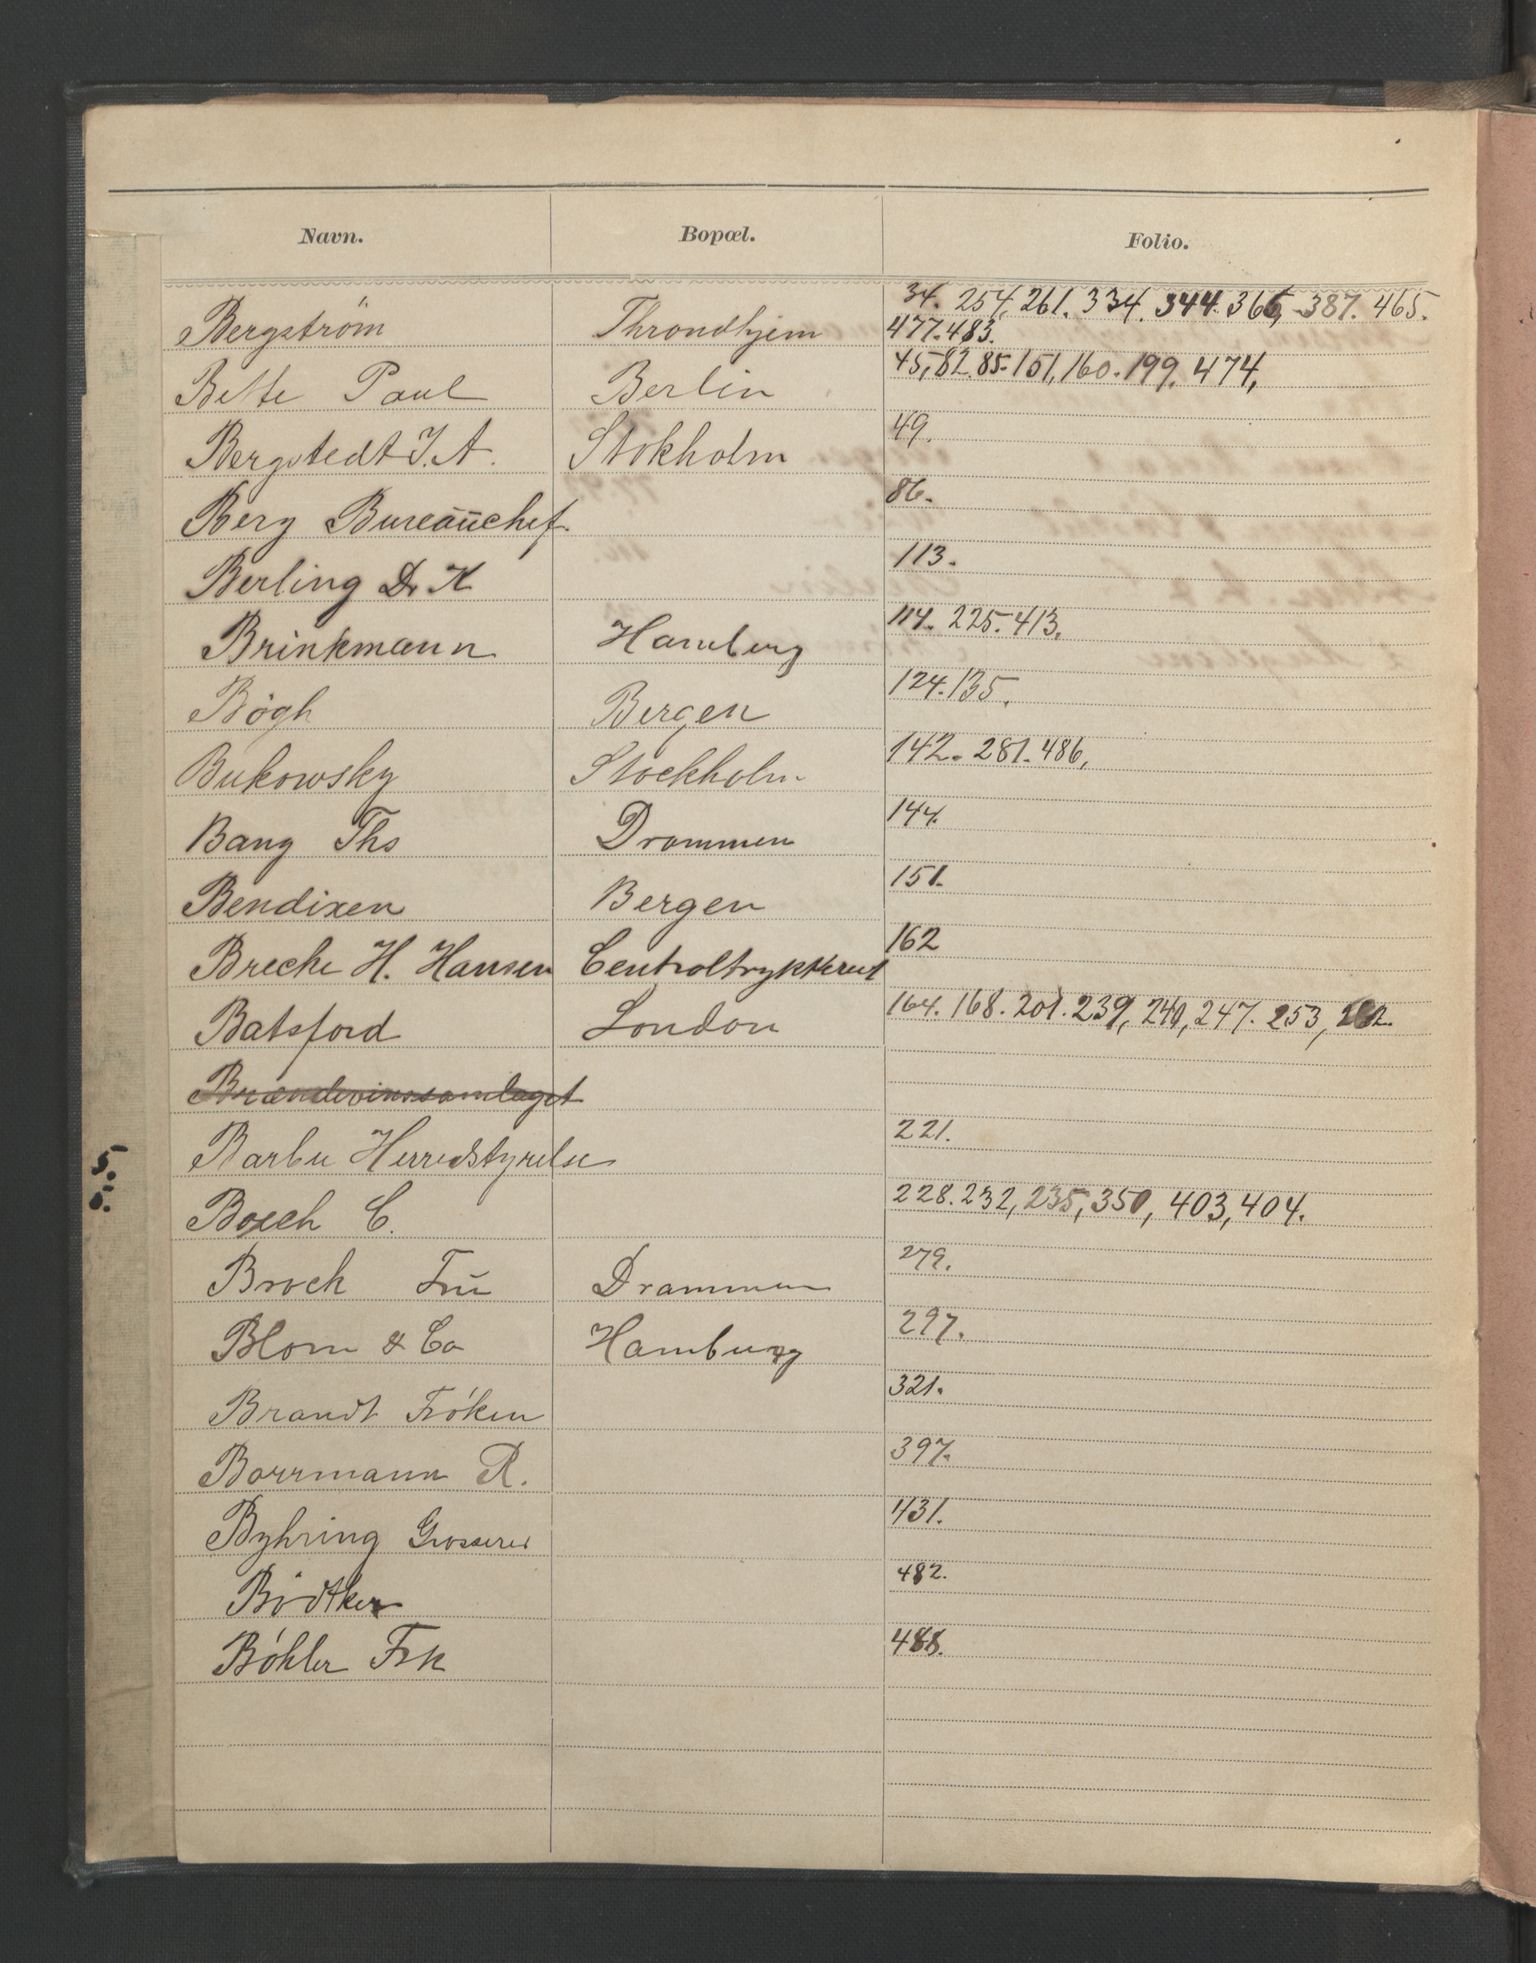 Navn. Bopæl. Folio.
34. 254, 261. 334. 344. 366, 387. 465.
Bergström Throndhjem 477. 483.
Bette Paul Berlin 45, 82. 85. 151, 160. 199. 474,
Bergstedt J. A. Stokholm 49.
Berg Bureauchef. 86.
Berling Dr K 113.
Brinkmann Hamberg 114. 225. 413.
Bøgh Bergen 124. 135.
Bukowsky Stockholm 142. 281. 486,
Bang Ths Drammen 144.
Bendixen Bergen 151.
Breche H. Hansen Centraltrykkeriet 162
Batsford London 164. 168. 201. 239, 240, 247. 253, 262.
Brændevinssamlaget
Barbu Herredstyrelse 221.
Bosch C. 228. 232, 235, 350, 403, 404.
Brock Fru Drammen 279.
Blom & Co Hamburg 297.
Brandt Frøken 321.
Borrmann R. 397.
Byhring Grosserer 431.
Bødtker 482.
Bøhler Frk 488.
5.
5.